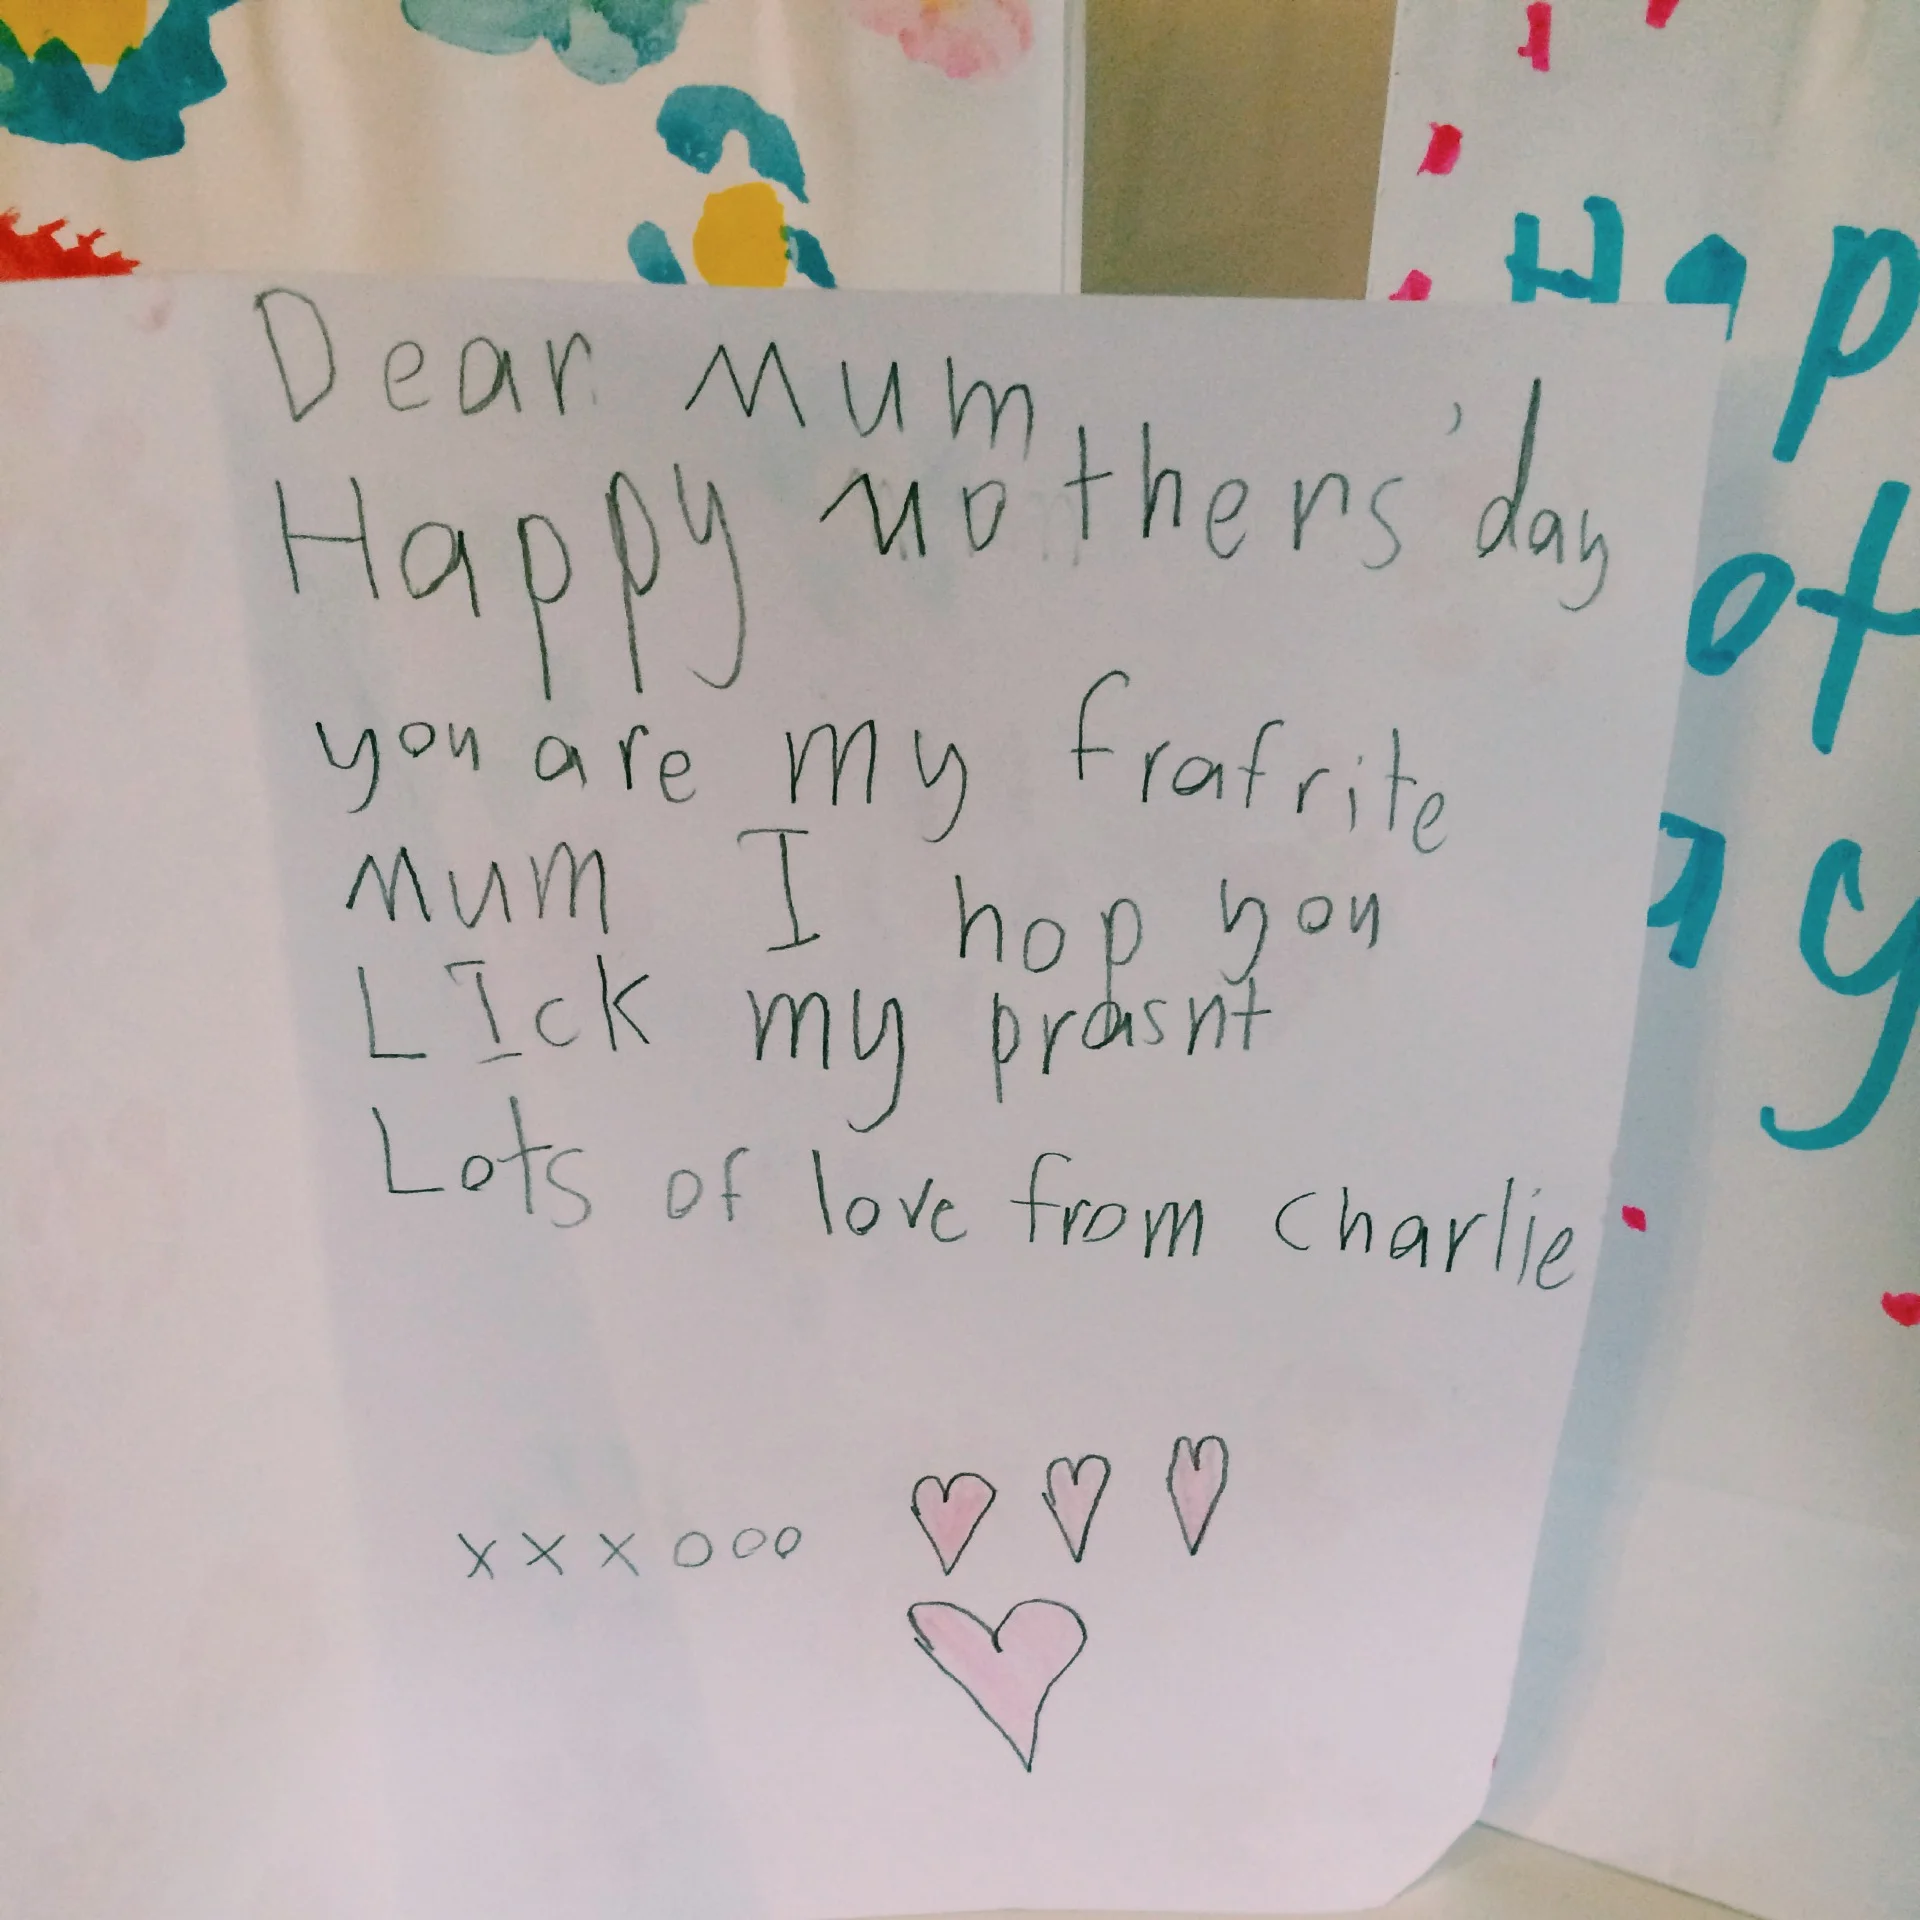 Dear Mum
Happy mothers' day
you are my frafrite
Mum I hop you
LIck my prasnt
Lots of love from charlie
xxxooo
Hap
ot
ay